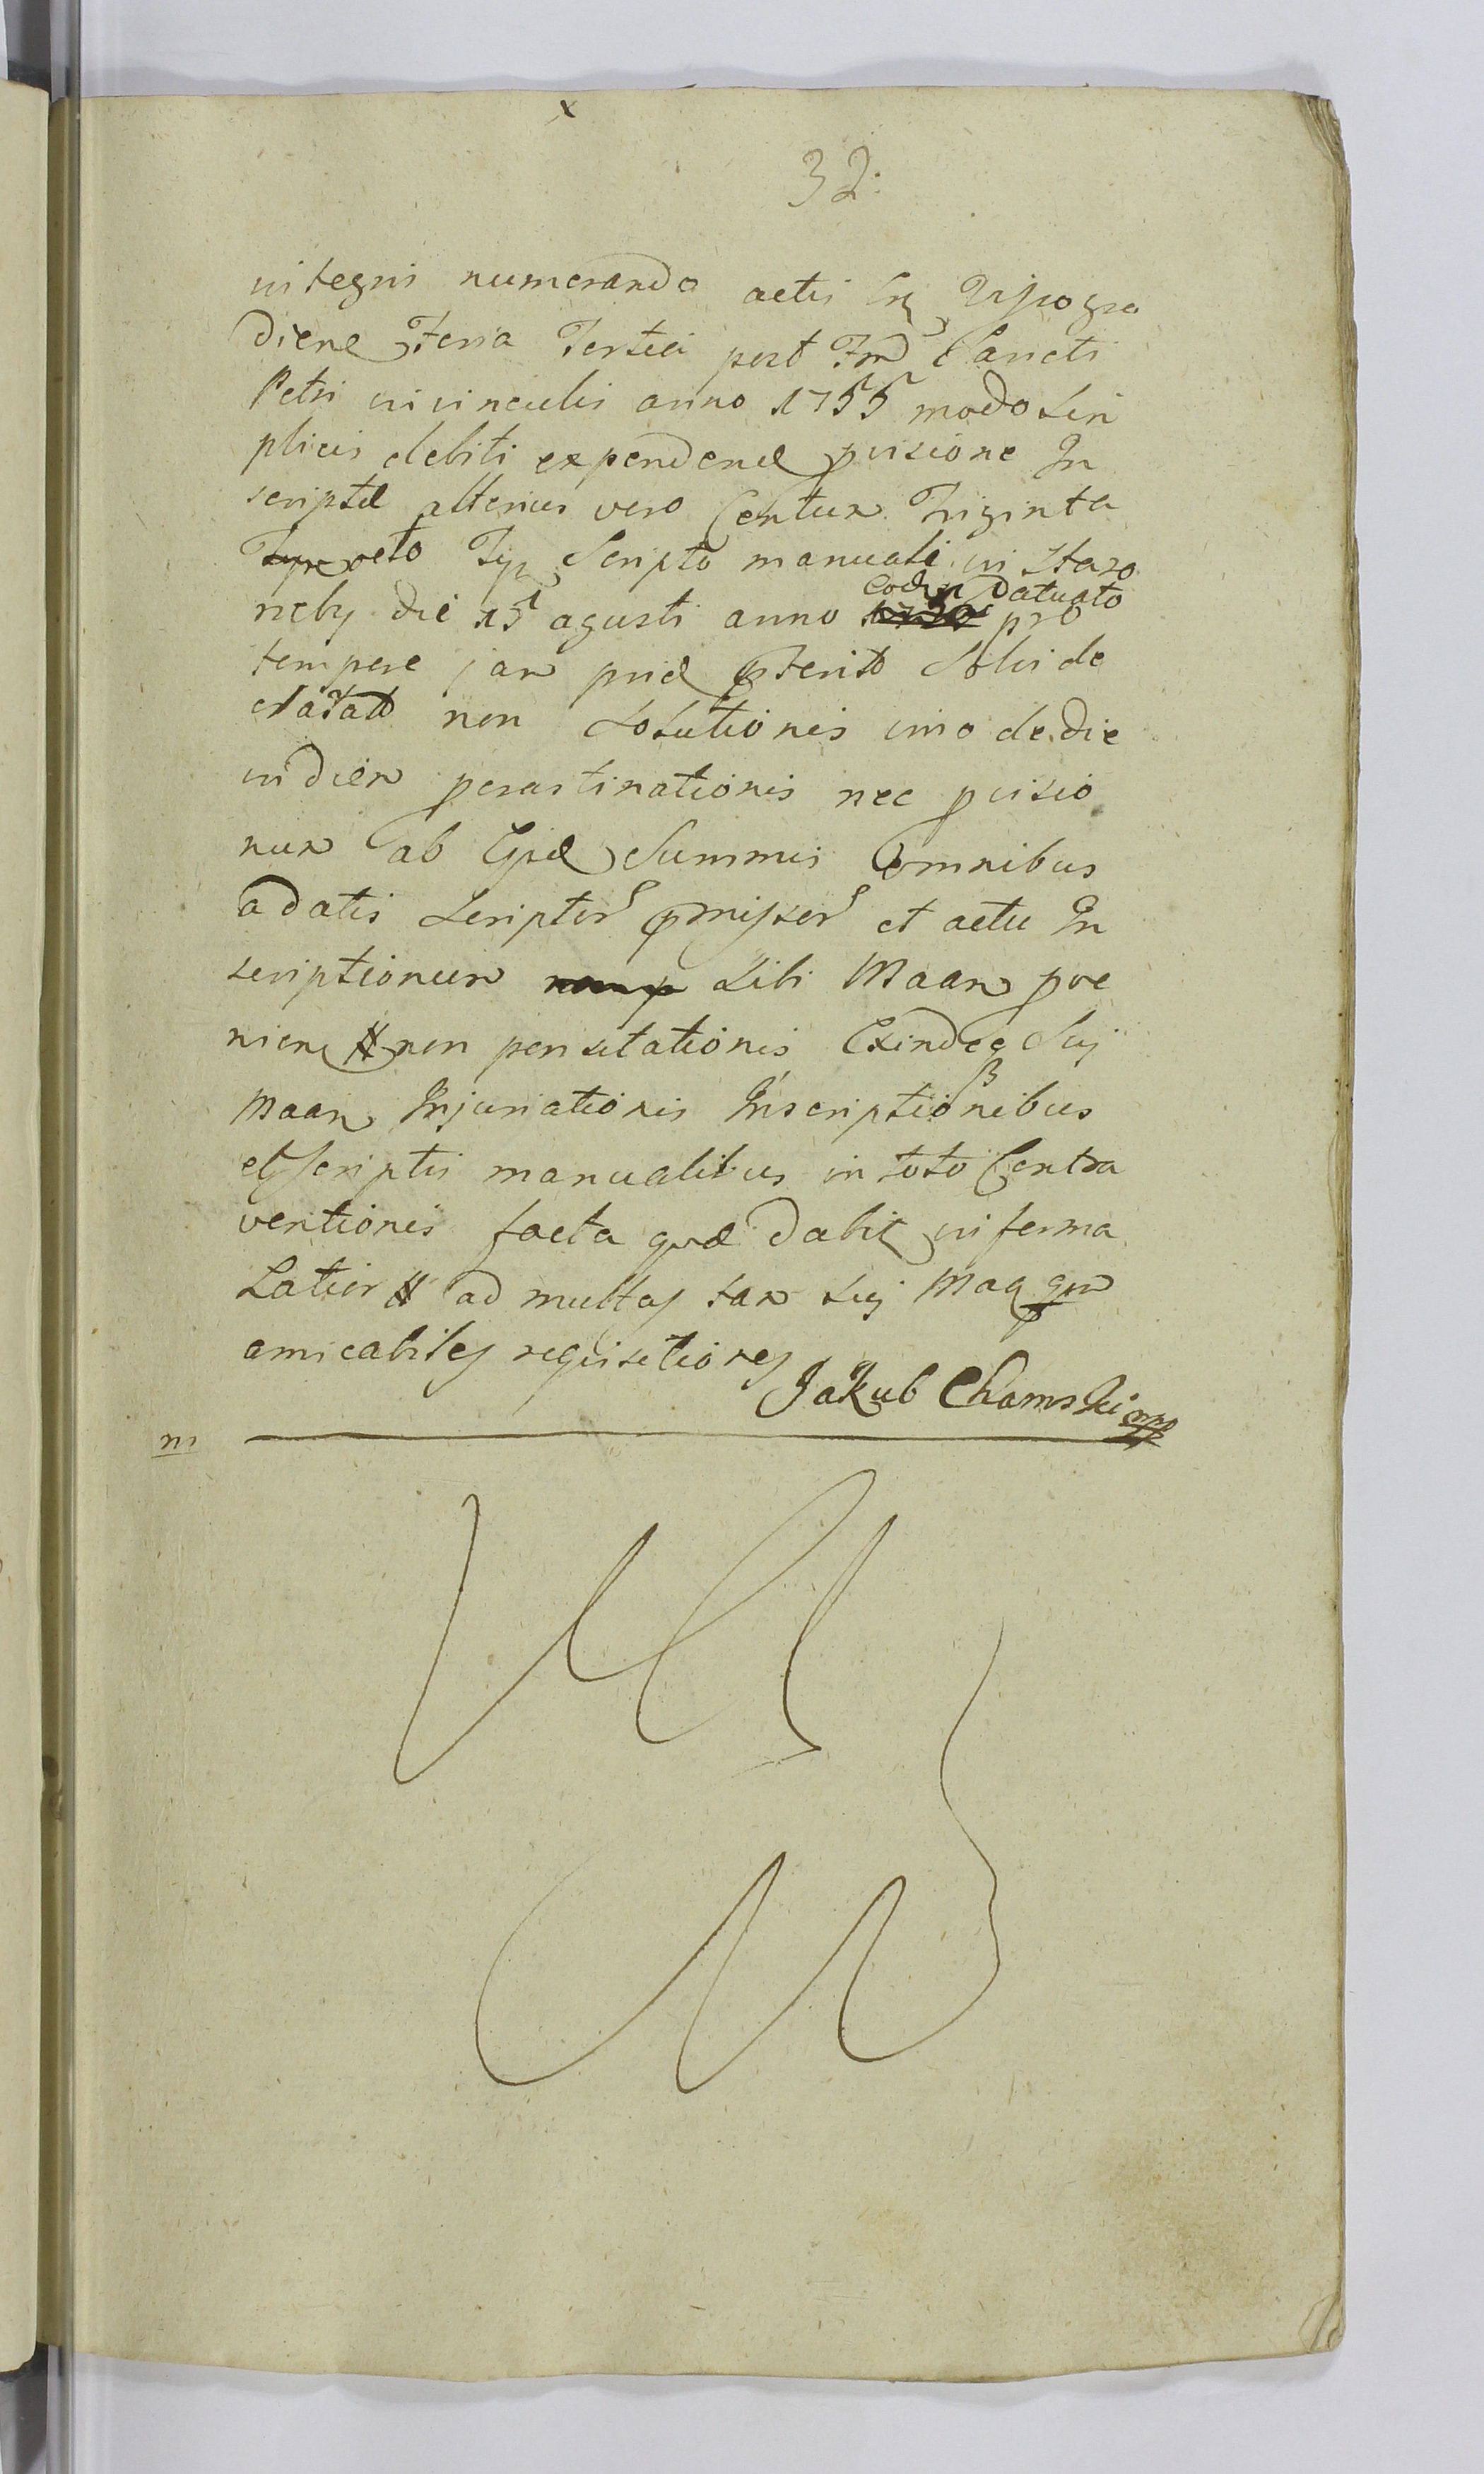 x
32.
integris numeranda actis Crz Vyssogra
diene Feria Tertia post Fm Sancti
Petri in vinculis anno 1755 modo sim
plicis debiti expendend provisione In
scriptæ alterius vero Centum Triginta
octo Typ Scripto manuali in Staro
reby die 15 agusti anno eodem datuato pro
tempore jam prid præterito Solvi de
claratæ non Solutionis imo de die
in diem perastinationis nec provisio
num ab Ejsd Summis omnibus
a datis scriptor præmissor et actu In
scriptionum sibi Maan prove
nien non pensitationis Exindeq Sui
Maan Injuriationis Inscriptionibus
et scriptis manualibus in toto Contra
ventionis facta quæ dabit in forma
Latior ad multas tam sui Maa qm
amicabiles requisitiones
Jakub Chamski mpp
ni